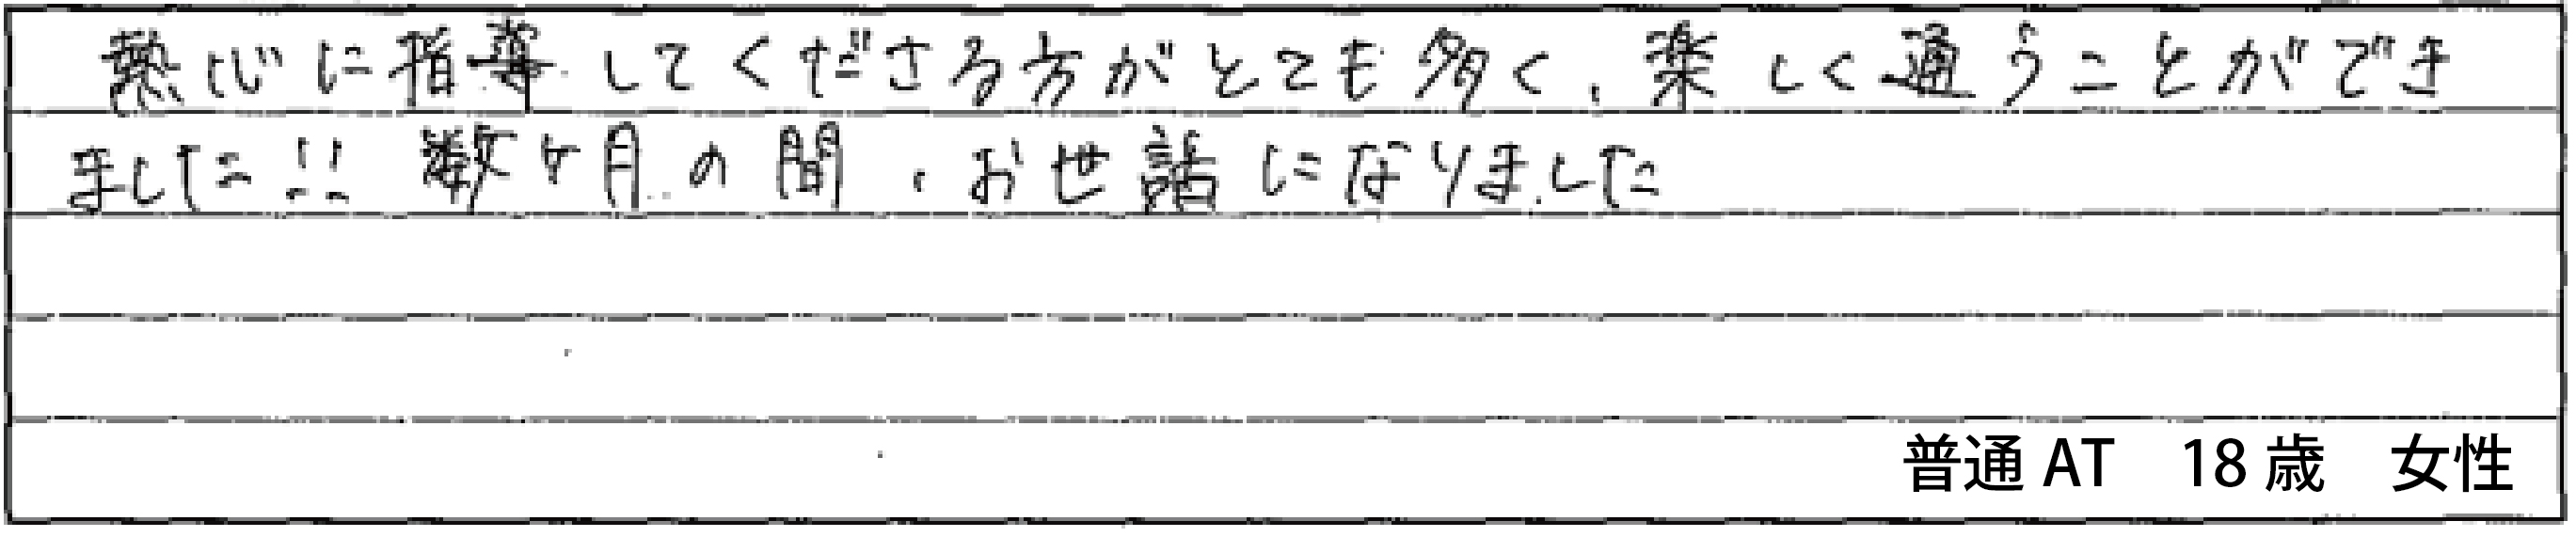 熱心に指導してくださる方がとても多く、楽しく通うことができ
ました!! 数ヶ月の間、お世話になりました
普通AT　18歳　女性